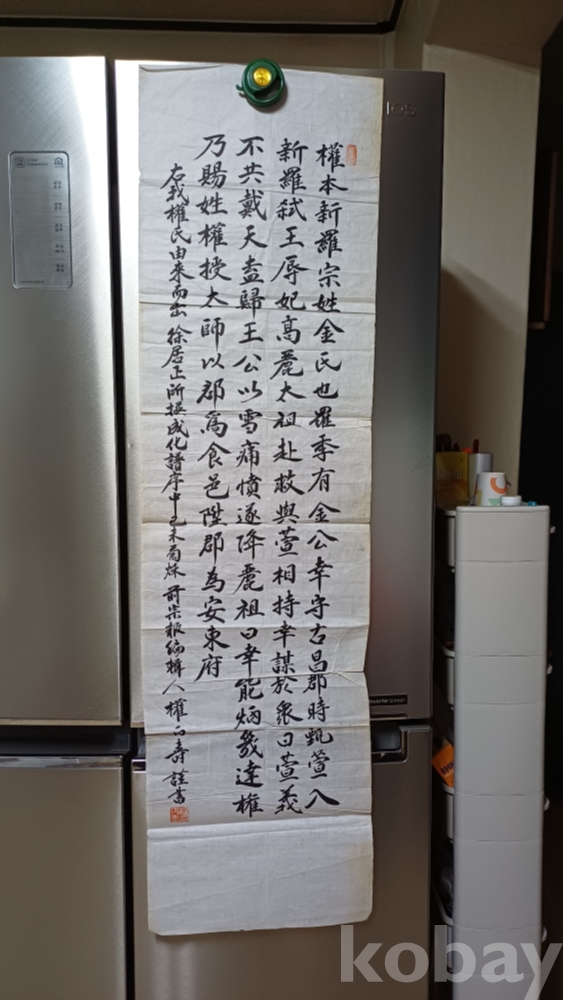 權本新羅宗姓金氏也羅季有金公幸守古昌郡時甄萱入
新羅弑王辱妃高麗太祖赴救與萱相持幸謀於衆曰萱義
不共戴天盍歸王公以雪痛憤遂降麗祖曰幸能炳幾達權
乃賜姓權授太師以郡爲食邑陞郡為安東府
右我權氏由來而出徐居正所撰成化譜序中己未菊秋 前宗報編輯人 權 壽 謹書
kobay